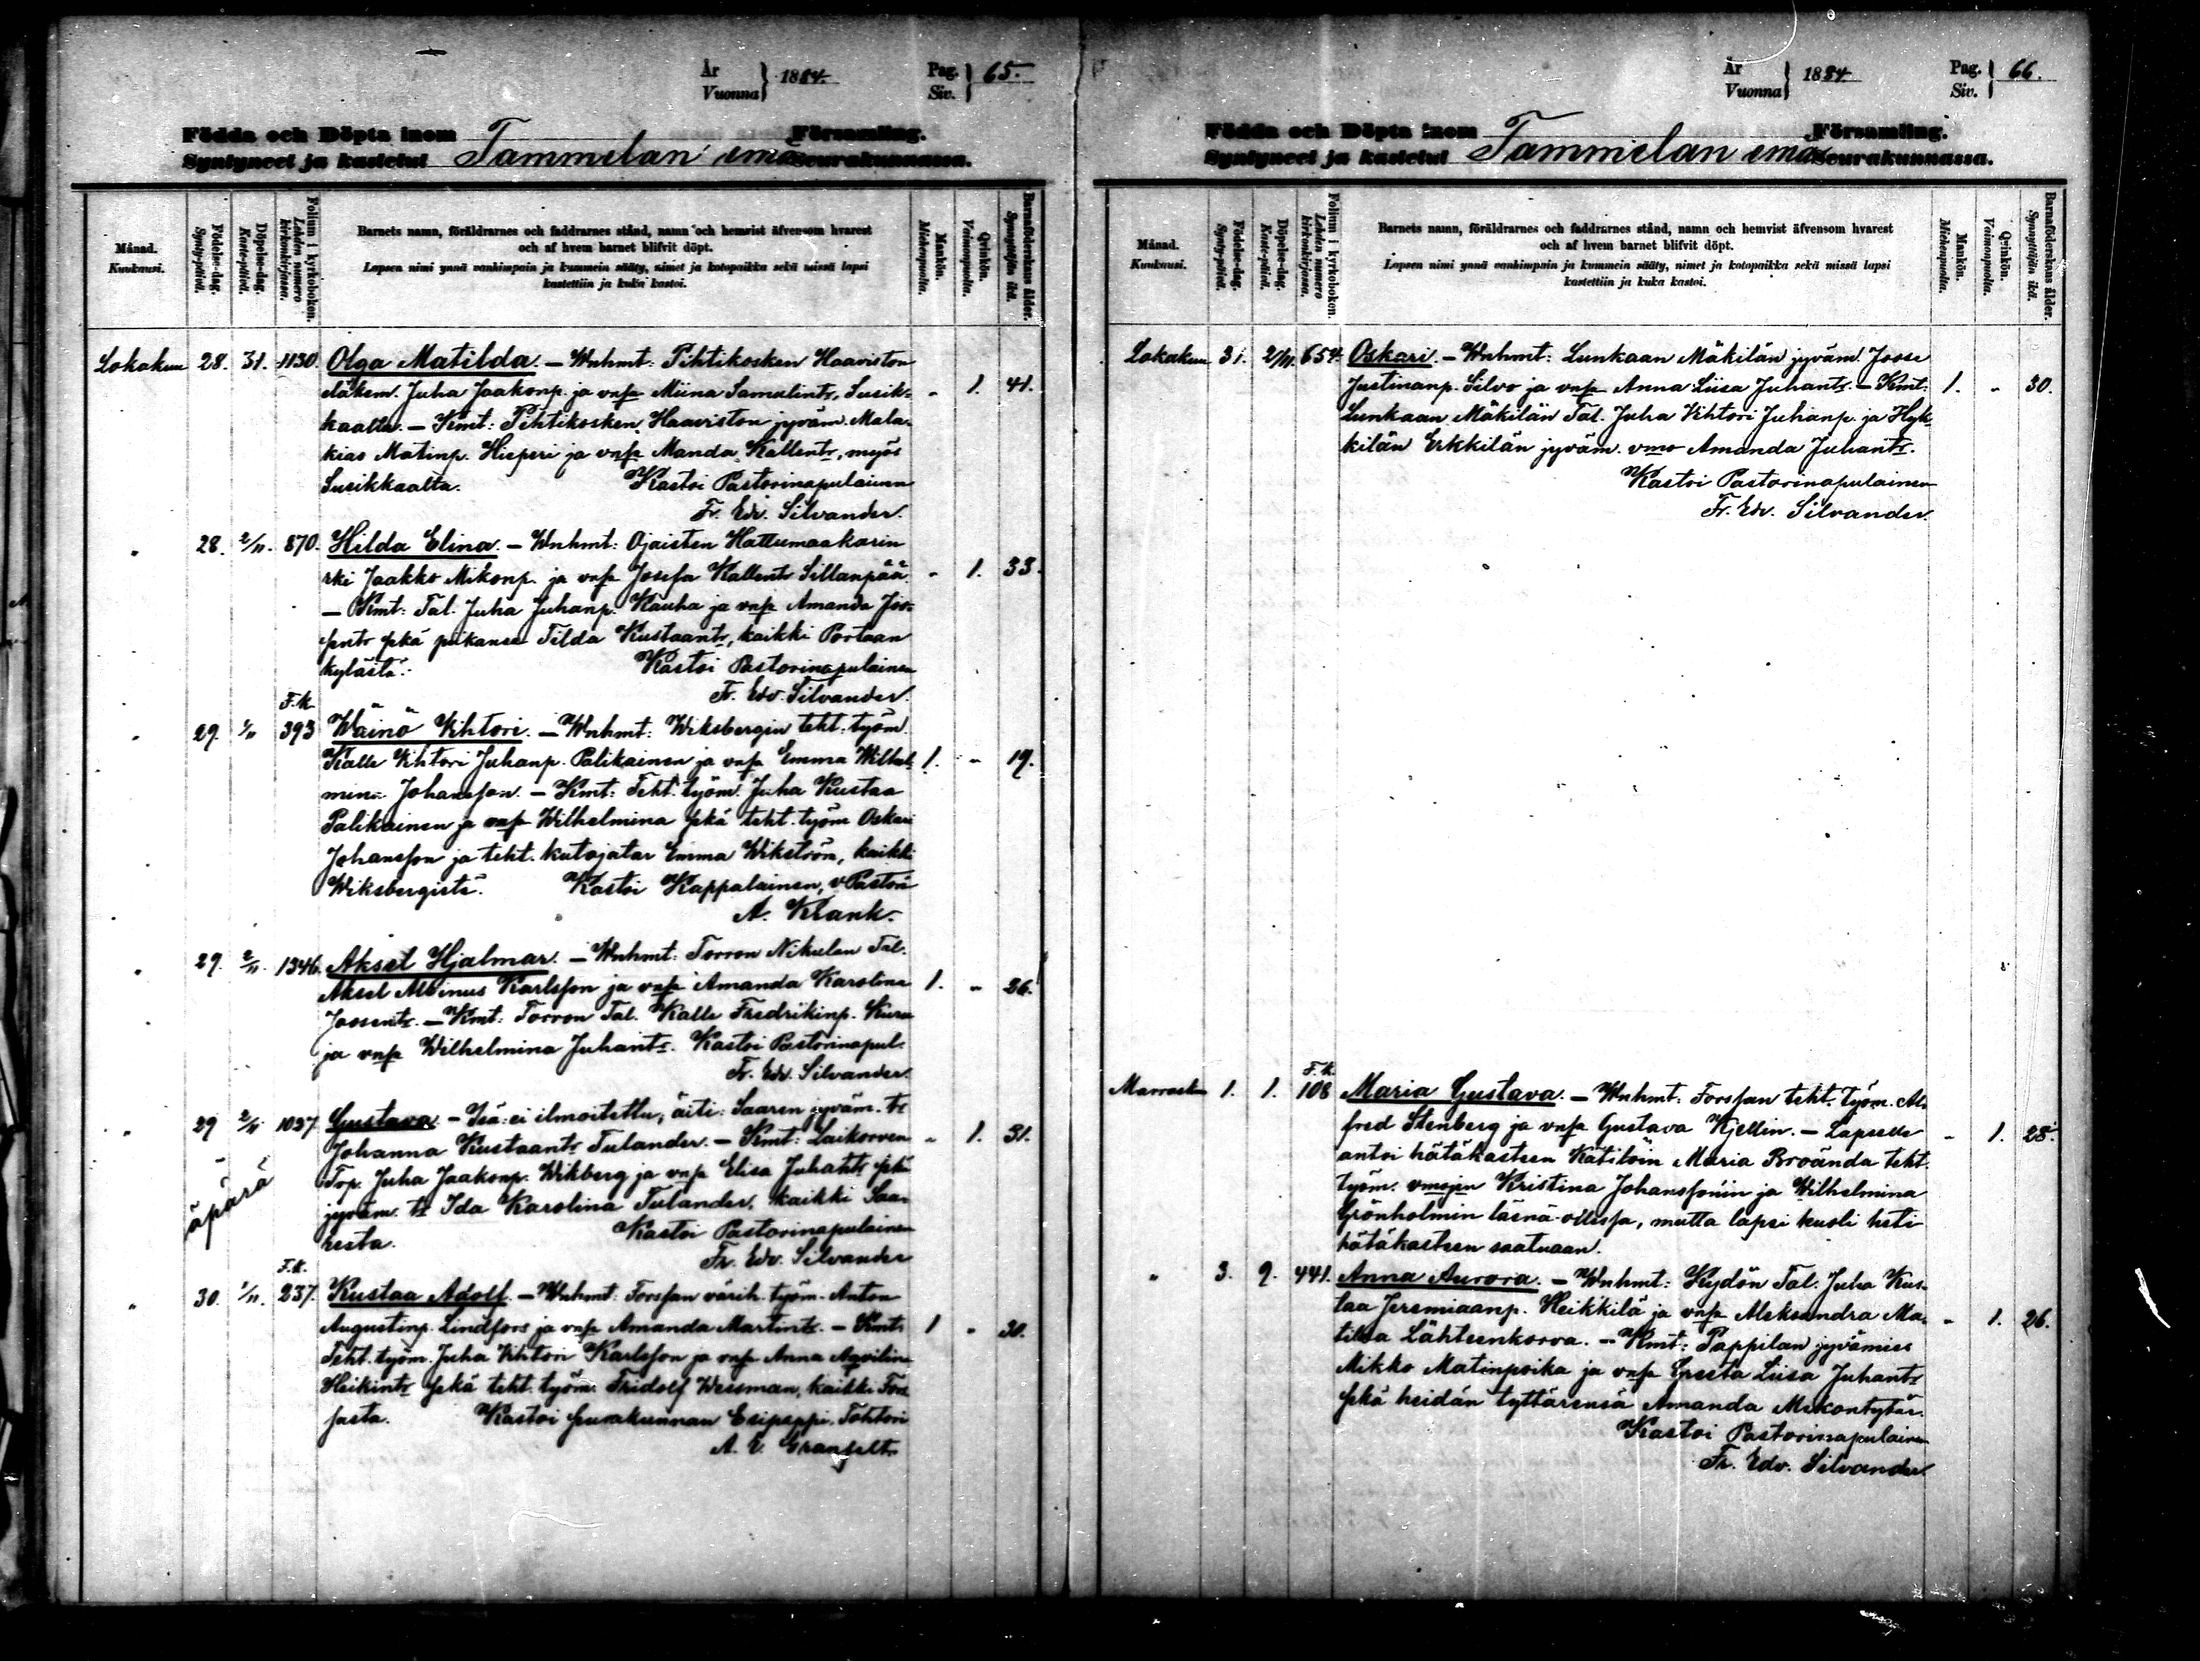 År
Vuonna } 1884.
Pag.
Siv. } 65.
Födda och Döpta inom
Syntyneet ja kastetut Tammelan emä
Församling.
Seurakunnassa.
Månad.
Kuukausi.
Födelse-dag.
Synty-päivä.
Döpelse-dag.
Kaste-päivä.
Folium i kyrkoboken.
Lehden numero
kirkonkirjassa.
Barnets namn, föräldrarnes och faddrarnes stånd, namn och hemvist äfvensom hvarest
och af hvem barnet blifvit döpt.
Lapsen nimi ynnä vanhimpain ja kummein sääty, nimet ja kotopaikka sekä missä lapsi
kastettiin ja kuka kastoi.
Mankön.
Miehenpuolta.
Qvinkön.
Vaimonpuolta.
Barnaföderskans ålder.
Synnyttäjän ikä.
Lokakuu 28. 31. 1130. Olga Matilda. – Wnhmt: Pihtikosken Haaviston
eläkem. Juha Jaakonp. ja vnsa Miina Samulintr, Susik- " 1. 41.
kaalta. – Kmt: Pihtikosken Haaviston jyväm. Mala-
kias Matinp. Hiespri ja vnsa Manda Kallentr, myös
Susikkaalta. Kastoi Pastorinapulainen
Fr. Edv. Silvander.
" 28. 2/11. 870. Hilda Elina. – Wnhmt: Ojaisten Hattumaakarin
rki Jaakko Mikonp. ja vnsa Josefa Kallentr Sillanpää. " 1. 33.
– Kmt: Tal. Juha Juhanp. Kauha ja vnsa Amanda Joo-
sentr sekä piikansa Tilda Kustaantr, kaikki Portaan
kylästä. Kastoi Pastorinapulainen
Fr. Edv. Silvander.
F.k.
" 29. 1/11 393 Wäinö Vihtori. – Wnhmt: Wiksbergin teht. työm.
Kalle Vihtori Juhanp. Palikainen ja vnsa Emma Wilhel- 1. " 19.
mina Johansson. – Kmt: Teht. työm. Juha Kustaa
Palikainen ja vnsa Wilhelmina sekä teht. työm Oskari
Johansson ja teht. kutojatar Emma Wikström, kaikki
Wiksbergistä. Kastoi Kappalainen, v. Pastori
A. Krank.
" 29. 2/11. 1346. Aksel Hjalmar. – Wnhmt: Torron Nikulan Tal.
Aksel Albinus Karlsson ja vnsa Amanda Karolina 1. " 26.
Joosentr. – Kmt: Torron Tal. Kalle Fredrikinp. Kuru
ja vnsa Wilhelmina Juhantr. Kastoi Pastorinapul.
Fr. Edv. Silvander.
" 29 2/11 1027 Gustava – Isä: ei ilmoitettu, äiti: Saaren jyväm. tr
Johanna Kustaantr Tulander. – Kmt: Laikorven " 1. 31.
Trp. Juha Jaakonp. Wikberg ja vnsa Elisa Juhantr sekä
äpärä
jyväm. tr Ida Karolina Tulander, kaikki Saa-
resta. Kastoi Pastorinapulainen
Fr. Edv. Silvander
F.k.
" 30. 1/11. 237. Kustaa Adolf. – Wnhmt: Forssan värih. työm. Anton
Augustinp. Lindfors ja vnsa Amanda Martintr. – Kmt: 1 " 30.
Teht. työm. Juha Vihtori Karlsson ja vnsa Anna Aqvilina
Heikintr sekä teht. työm. Fridolf Wessman, kaikki Fors-
sasta. Kastoi seurakunnan Esipappi, Tohtori
A. V. Granfelt.
År
Vuonna } 1884
Pag.
Siv. } 66.
Födda och Döpta inom
Syntyneet ja kastetut Tammelan emä
Församling.
Seurakunnassa.
Månad.
Kuukausi.
Födelse-dag.
Synty-päivä.
Döpelse-dag.
Kaste-päivä.
Folium i kyrkoboken.
Lehden numero
kirkonkirjassa.
Barnets namn, föräldrarnes och faddrarnes stånd, namn och hemvist äfvensom hvarest
och af hvem barnet blifvit döpt.
Lapsen nimi ynnä vanhimpain ja kummein sääty, nimet ja kotopaikka sekä missä lapsi
kastettiin ja kuka kastoi.
Mankön.
Miehenpuolta.
Qvinkön.
Vaimonpuolta.
Barnaföderskans ålder.
Synnyttäjän ikä.
Lokakuu 31. 2/11. 654. Oskari. – Wnhmt: Lunkaan Mäkilän jyväm. Joose
Justinanp. Silvo ja vnsa Anna Liisa Juhantr. – Kmt: 1. " 30.
Lunkaan Mäkilän Tal. Juha Vihtori Juhanp. ja Hyk-
kilän Erkkilän jyväm. vmo Amanda Juhantr.
Kastoi Pastorinapulainen
Fr. Edv. Silvander.
F.k.
Marrask. 1. 1. 108 Maria Gustava. – Wnhmt: Forssan teht. työm. Al-
fred Stenberg ja vnsa Gustava Kjellin. – Lapselle " 1. 28.
antoi hätäkasteen Kätilöin Maria Broända teht.
työm. vmojen Kristina Johanssonin ja Wilhelmina
Grönholmin läsnä-ollessa, mutta lapsi kuoli heti
hätäkasteen saatuaan.
" 3. 9. 441. Anna Aurora. – Wnhmt: Kydön Tal. Juha Kus-
taa Jeremiaanp. Heikkilä ja vnsa Aleksandra Ma- " 1. 26.
tilda Lähteenkorva. – Kmt: Pappilan jyvämies
Mikko Matinpoika ja vnsa Greeta Liisa Juhantr
sekä heidän tyttärensä Amanda Mikontytär.
Kastoi Pastorinapulainen
Fr. Edv. Silvander.